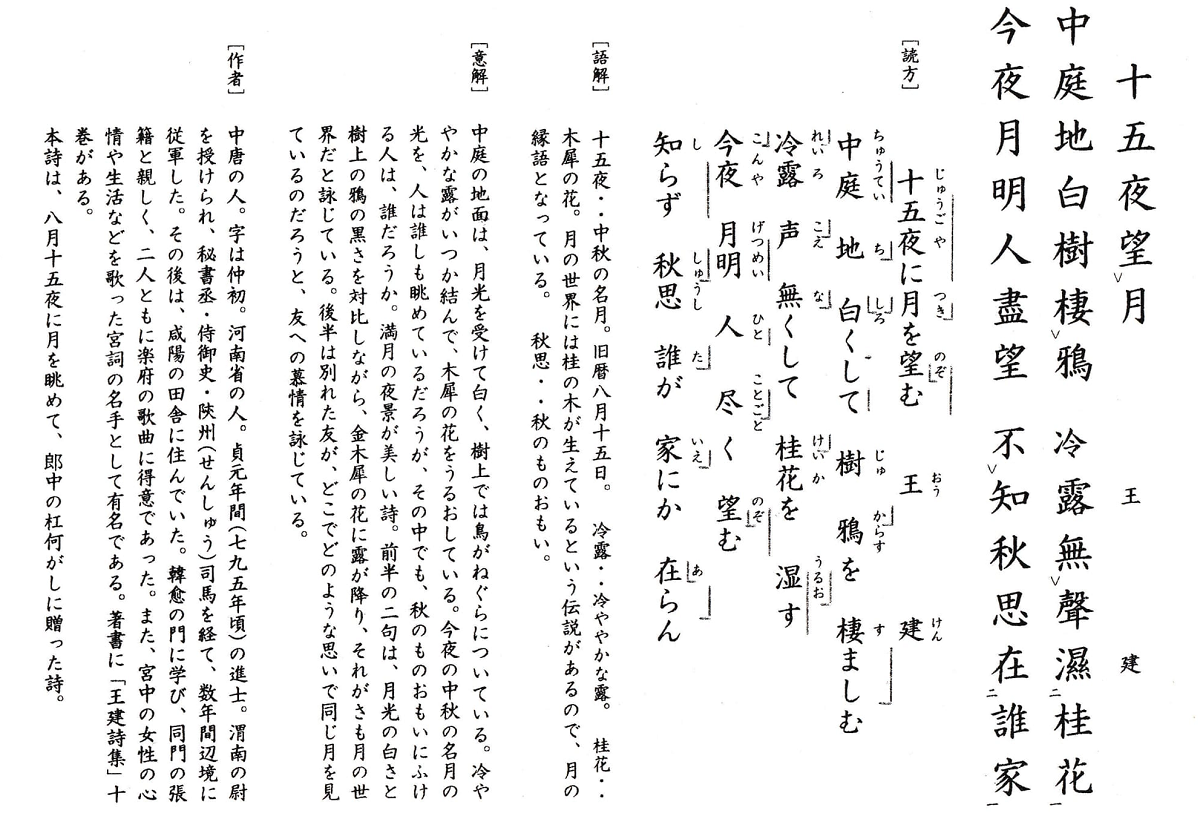 十五夜望月 王 建
中庭地白樹棲鴉 冷露無聲濕桂花
今夜月明人盡望 不知秋思在誰家
［読方］
十五夜に月を望む 王 建
じゅうごや つき のぞ おう けん
中庭 地 白くして 樹 鴉を 棲ましむ
ちゅうてい ち しろ じゅ からす す
冷露 声 無くして 桂花を 湿す
れいろ こえ な けいか うるお
今夜 月明 人 尽く 望む
こんや げつめい ひと ことごと のぞ
知らず 秋思 誰が 家にか 在らん
し しゅうし た いえ あ
［語解］
十五夜・・中秋の名月。旧暦八月十五日。 冷露・・冷ややかな露。 桂花・・
木犀の花。月の世界には桂の木が生えているという伝説があるので、月の
縁語となっている。 秋思・・秋のものおもい。
［意解］
中庭の地面は、月光を受けて白く、樹上では鳥がねぐらについている。冷や
やかな露がいつか結んで、木犀の花をうるおしている。今夜の中秋の名月の
光を、人は誰しも眺めているだろうが、その中でも、秋のものおもいにふけ
る人は、誰だろうか。満月の夜景が美しい詩。前半の二句は、月光の白さと
樹上の鴉の黒さを対比しながら、金木犀の花に露が降り、それがさも月の世
界だと詠じている。後半は別れた友が、どこでどのような思いで同じ月を見
ているのだろうと、友への慕情を詠じている。
［作者］
中唐の人。字は仲初。河南省の人。貞元年間（七九五年頃）の進士。渭南の尉
を授けられ、秘書丞・侍御史・陝州（せんしゅう）司馬を経て、数年間辺境に
従軍した。その後は、咸陽の田舎に住んでいた。韓愈の門に学び、同門の張
籍と親しく、二人ともに楽府の歌曲に得意であった。また、宮中の女性の心
情や生活などを歌った宮詞の名手として有名である。著書に「王建詩集」十
巻がある。
本詩は、八月十五夜に月を眺めて、郎中の杠何がしに贈った詩。